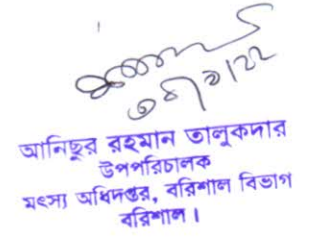 আনিছুর রহমান তালুকদার
উপপরিচালক
মৎস্য অধিদপ্তর, বরিশাল বিভাগ
বরিশাল।